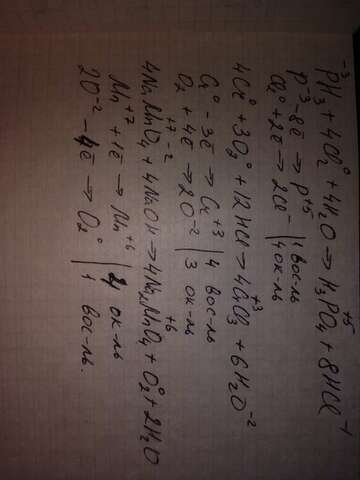 ⁻³PH₃ + 4Cl₂⁰ + 4H₂O → H₃P⁺⁵O₄ + 8HCl⁻¹
P⁻³ - 8ē → P⁺⁵ | 1 вос-ль
Cl₂⁰ + 2ē → 2Cl⁻ | 4 ок-ль
4Cr⁰ + 3O₂⁰ + 12HCl → 4Cr⁺³Cl₃ + 6H₂O⁻²
Cr⁰ - 3ē → Cr⁺³ | 4 вос-ль
O₂⁰ + 4ē → 2O⁻² | 3 ок-ль
4NaMn⁺⁷O₄⁻² + 4NaOH → 4Na₂Mn⁺⁶O₄ + O₂⁰ + 2H₂O
Mn⁺⁷ + 1ē → Mn⁺⁶ | 4 ок-ль
2O⁻² - 4ē → O₂⁰ | 1 вос-ль.